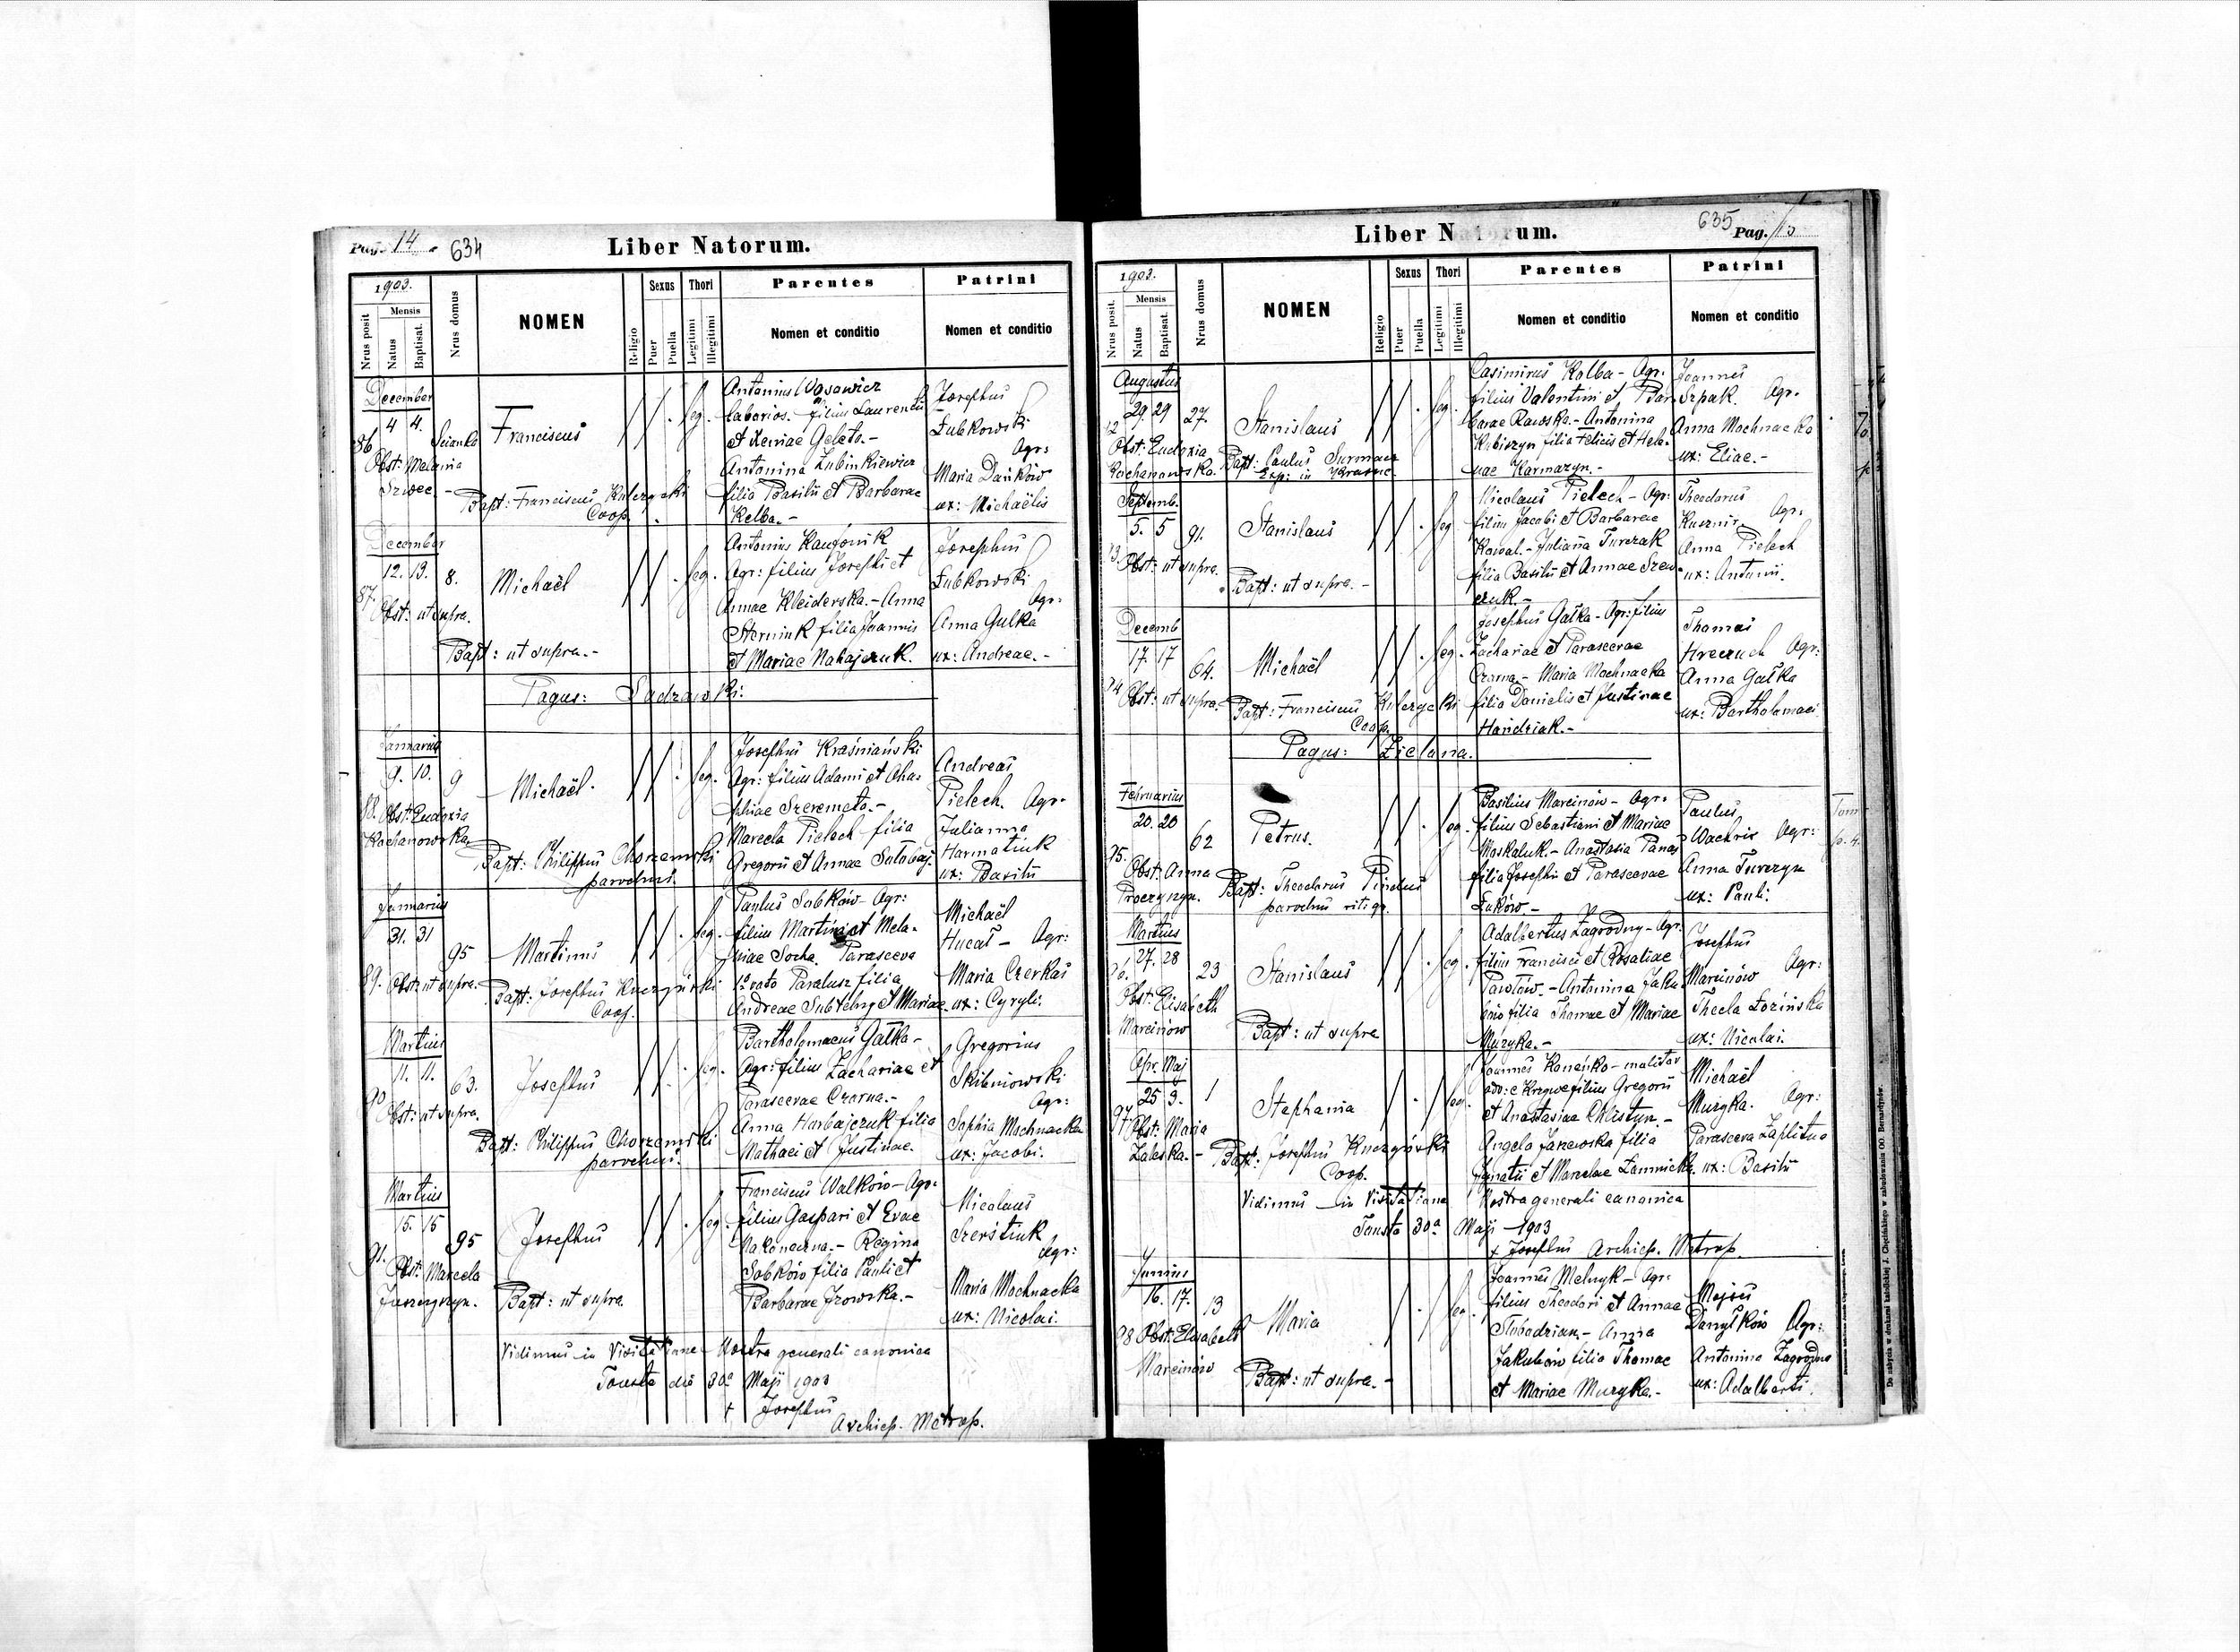 Pag. 14 634
Liber Natorum.
1903.
Nrus posit
Mensis
Natus
Baptisat.
Nrus domus
NOMEN
Religio
Sexus
Puer
Puella
Thori
Legitimi
Illegitimi
Parentes
Nomen et conditio
Patrini
Nomen et conditio
December
86 4 4.
Obst: Melania
Szwec. -
Franciscus
leg.
Bapt: Franciscus
Coop.
Antonius Wąsowicz
laborios. filius Laurentii
et Xeniae Geleta.-
Antonina Zubinkiewicz
filia Basilii et Barbarae
Kelba.-
Josephus
Łubkowski
Agr:
Maria Dańków
ux: Michaëlis
December
87. 12. 13. 8.
Obst: ut supra.
Michaël
leg.
Bapt: ut supra.-
Antonius
Agr: filius Josephi et
Annae Kleiderska.- Anna
Sternink filia Joannis
et Mariae Nahajczuk.
Josephus
Łubkowski
Agr:
Anna Gulka
ux: Andreae.-
Pagus: Sadzawki:
Januarius
88. 9. 10. 9
Obst: Eudoxia
Kochanowska
Michaël.
leg.
Bapt: Philippus Chorzemski
parochus.
Josephus Kraśniański
Agr: filius Adami et Aha-
phiae Szeremeta.-
Marcela Pielech filia
Gregorii et Annae
Andreas
Pielech. Agr.
Julianna
Harmatiuk
ux: Basilii
Januarius
89. 31. 31 95
Obst: ut supra.
Martinus
leg.
Bapt: Josephus Kuczyński
Coop.
Paulus Sobków - Agr:
filius Martini et Mela-
niae Socha. Parasceva
1o voto Paralusz filia
Andreae Subtelny et Mariae
Michaël
Hucał - Agr:
Maria Czerkas
ux: Cyryli.
Martius
90 11. 11. 63.
Obst: ut supra.
Josephus
leg.
Bapt: Philippus Chorzemski
parochus.
Bartholomaeus Gałka -
Agr: filius Zachariae et
Parascevae Czorna.-
Anna Harbajczuk filia
Mathaei et Justinae.
Gregorius
Skibniowski
Agr:
Sophia Mochnacka
ux: Jacobi.
Martius
91. 15. 15 95
Obst: Marcela
Josephus
leg.
Bapt: ut supra.
Franciscus Walków - Agr.
filius Gaspari et Evae
Nakoneczna.- Regina
Sobków filia Pauli et
Barbarae Jzowska.-
Nicolaus
Szerstiuk
Agr:
Maria Mochnacka
ux: Nicolai.
Vidimus in Visitatione Nostra generali canonica
Touste die 30a Maji 1903
+ Josephus
Archiep. Metrop.
Liber Natorum.
635 Pag. 15
1903.
Nrus posit.
Mensis
Natus
Baptisat.
Nrus domus
NOMEN
Religio
Sexus
Puer
Puella
Thori
Legitimi
Illegitimi
Parentes
Nomen et conditio
Patrini
Nomen et conditio
Augustus
29. 29 27.
Obst: Eudoxia
Kochanowska.
Stanislaus
leg.
Bapt: Paulus Surmacz
Exp: in Krasne
Casimirus Kolba - Agr.
filius Valentini et Bar-
barae Rawska.- Antonina
Kubiszyn filia Felicis et Hele-
nae Karmazyn.-
Joannes
Szpak. Agr.
Anna Mochnacka
ux: Eliae.-
Septemb.
5. 5 91.
Obst: ut supra.
Stanislaus
leg
Bapt: ut supra.-
Nicolaus Pielech - Agr:
filius Jacobi et Barbarae
Kowal.- Julianna Turczak
filia Basilii et Annae Szew-
czuk.-
Theodorus
Kusznir. Agr:
Anna Pielech
ux: Antonii.
Decemb
17. 17 64.
Obst: ut supra.
Michaël
leg.
Bapt: Franciscus
Coop.
Josephus Gałka - Agr: filius
Zachariae et Parascevae
Czorna.- Maria Mochnacka
filia Danielis et Justinae
Handziak.-
Thomas
Agr:
Anna Gałka
ux: Bartholomaei
Pagus: Zielona.
Februarius
95. 20. 20 62
Obst: Anna
Petrus.
leg.
Bapt: Theodorus Pindus
parochus rit: gr.
Basilius Marcinów - Agr.
filius Sebastiani et Mariae
Moskaluk.- Anastasia Panas
filia Josephi et Parascevae
Łuków.-
Paulus
Wachris Agr:
Anna Turczyn
ux: Pauli.
Martius
96. 27. 28 23
Obst: Elisabeth
Marcinów
Stanislaus
leg.
Bapt: ut supra
Adalbertus Zagrodny - Agr.
filius Francisci et Rosaliae
Pawłów.- Antonina Jaku-
bów filia Thomae et Mariae
Muzyka.-
Josephus
Marcinów Agr:
Thecla Łozińska
ux: Nicolai.
Apr. Maj
97 25 3. 1
Obst: Maria
Zaleska.-
Stephania
leg.
Bapt: Josephus Kuczyński
Coop.
Joannes
filius Gregorii
et Anastasiae
Angela Janewska filia
Ignatii et Marcelae
Michaël
Muzyka. Agr:
Parasceva Zaplitna
ux: Basilii
Vidimus in Visitatione Nostra generali canonica
Touste 30a Maji 1903
+ Josephus Archiep. Metrop.
Junius
98 16. 17. 13
Obst: Elisabeth
Marcinów
Maria
leg.
Bapt: ut supra.-
Joannes Melnyk - Agr:
filius Theodori et Annae
- Anna
Jakubów filia Thomae
et Mariae Muzyka.-
Mojses
Danyłków Agr:
Antonina Zagrodna
ux: Adalberti.